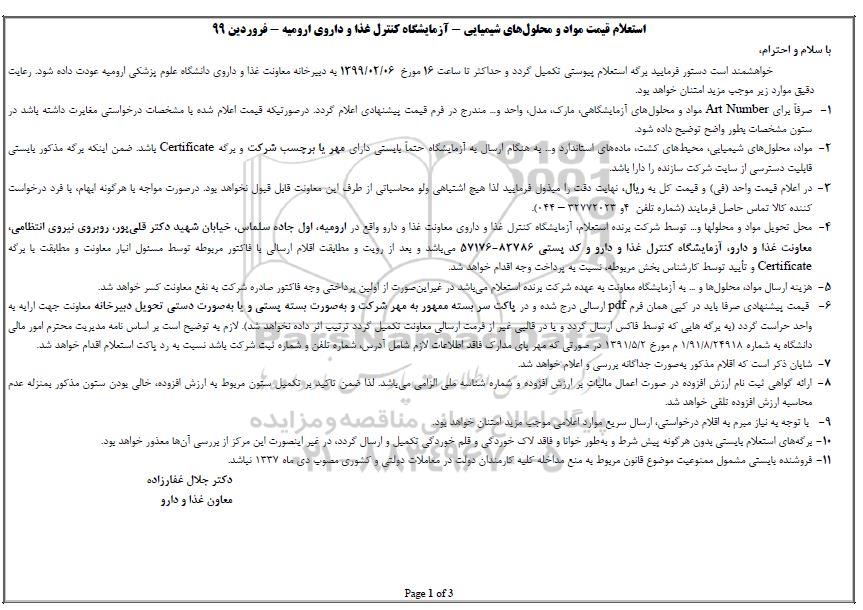 استعلام قیمت مواد و محلول‌های شیمیایی – آزمایشگاه کنترل غذا و داروی ارومیه – فروردین ۹۹
با سلام و احترام،
خواهشمند است دستور فرمایید برگه استعلام پیوستی تکمیل گردد و حداکثر تا ساعت ۱۶ مورخ ۱۳۹۹/۰۲/۰۶ به دبیرخانه معاونت غذا و داروی دانشگاه علوم پزشکی ارومیه عودت داده شود. رعایت
دقیق موارد زیر موجب مزید امتنان خواهد بود.
۱- صرفاً برای Art Number مواد و محلول‌های آزمایشگاهی، مارک، مدل، واحد و... مندرج در فرم قیمت پیشنهادی اعلام گردد. درصورتیکه قیمت اعلام شده با مشخصات درخواستی مغایرت داشته باشد در
ستون مشخصات بطور واضح توضیح داده شود.
۲- مواد، محلول‌های شیمیایی، محیط‌های کشت، ماده‌های استاندارد و... به هنگام ارسال به آزمایشگاه حتماً بایستی دارای مهر یا برچسب شرکت و برگه Certificate باشد. ضمن اینکه برگه مذکور بایستی
قابلیت دسترسی از سایت شرکت سازنده را دارا باشد.
۳- در اعلام قیمت واحد (فی) و قیمت کل به ریال، نهایت دقت را مبذول فرمایید لذا هیچ اشتباهی ولو محاسباتی از طرف این معاونت قابل قبول نخواهد بود. درصورت مواجه با هرگونه ابهام، با فرد درخواست
کننده کالا تماس حاصل فرمایند (شماره تلفن ۴و ۳۲۷۷۲۰۲۳ – ۰۴۴).
۴- محل تحویل مواد و محلولها و... توسط شرکت برنده استعلام، آزمایشگاه کنترل غذا و داروی معاونت غذا و دارو واقع در ارومیه، اول جاده سلماس، خیابان شهید دکتر قلی‌پور، روبروی نیروی انتظامی،
معاونت غذا و دارو، آزمایشگاه کنترل غذا و دارو و کد پستی ۸۲۷۸۶-۵۷۱۷۶ می‌باشد و بعد از رویت و مطابقت اقلام ارسالی با فاکتور مربوطه توسط مسئول انبار معاونت و مطابقت با برگه
Certificate و تأیید توسط کارشناس بخش مربوطه، نسبت به پرداخت وجه اقدام خواهد شد.
۵- هزینه ارسال مواد، محلول‌ها و ... به آزمایشگاه معاونت به عهده شرکت برنده استعلام می‌باشد در غیراین‌صورت از اولین پرداختی وجه فاکتور صادره شرکت به نفع معاونت کسر خواهد شد.
۶- قیمت پیشنهادی صرفا باید در کپی همان فرم pdf ارسالی درج شده و در پاکت سر بسته ممهور به مهر شرکت و به‌صورت بسته پستی و یا به‌صورت دستی تحویل دبیرخانه معاونت جهت ارایه به
واحد حراست گردد (به برگه هایی که توسط فاکس ارسال گردد و یا در قالبی غیر از فرمت ارسالی معاونت تکمیل گردد ترتیب اثر داده نخواهد شد). لازم به توضیح است بر اساس نامه مدیریت محترم امور مالی
دانشگاه به شماره ۱/۹۱/۸/۲۴۹۱۸ م مورخ ۱۳۹۱/۵/۲ در صورتی که مهر پای مدارک فاقد اطلاعات لازم شامل آدرس، شماره تلفن و شماره ثبت شرکت باشد نسبت به رد پاکت استعلام اقدام خواهد شد.
۷- شایان ذکر است که اقلام مذکور به‌صورت جداگانه بررسی و اعلام خواهد شد.
۸- ارائه گواهی ثبت نام ارزش افزوده در صورت اعمال مالیات بر ارزش افزوده و شماره شناسه ملی الزامی می‌باشد. لذا ضمن تاکید بر تکمیل ستون مربوط به ارزش افزوده، خالی بودن ستون مذکور بمنزله عدم
محاسبه ارزش افزوده تلقی خواهد شد.
۹- با توجه به نیاز مبرم به اقلام درخواستی، ارسال سریع موارد اعلامی موجب مزید امتنان خواهد بود.
۱۰- برگه‌های استعلام بایستی بدون هرگونه پیش شرط و به‌طور خوانا و فاقد لاک خوردگی و قلم خوردگی تکمیل و ارسال گردد، در غیر اینصورت این مرکز از بررسی آن‌ها معذور خواهد بود.
۱۱- فروشنده بایستی مشمول ممنوعیت موضوع قانون مربوط به منع مداخله کلیه کارمندان دولت در معاملات دولتی و کشوری مصوب دی ماه ۱۳۳۷ نباشد.
دکتر جلال غفارزاده
معاون غذا و دارو
ParsNamadData
پایگاه اطلاع رسانی مناقصه و مزایده
۰۲۱-۸۸۳۴۹۶۷۰-۵
Page 1 of 3